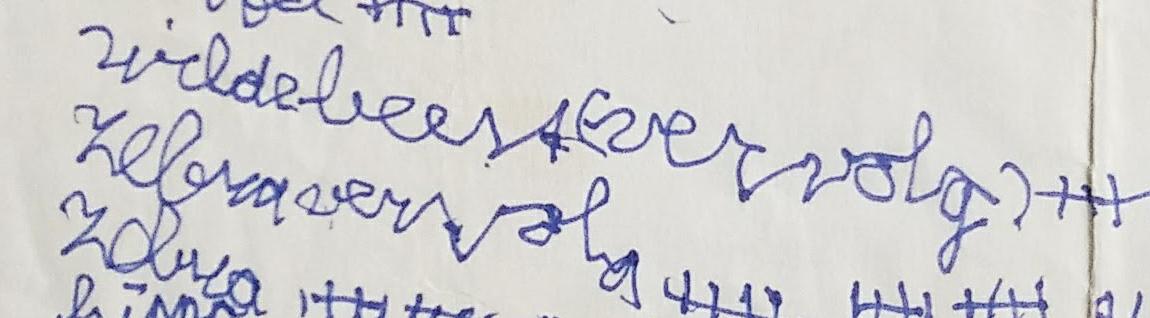 wildebeest(vervolg) +++
Zebravervolg ++++ ++++ ++++
Zebra